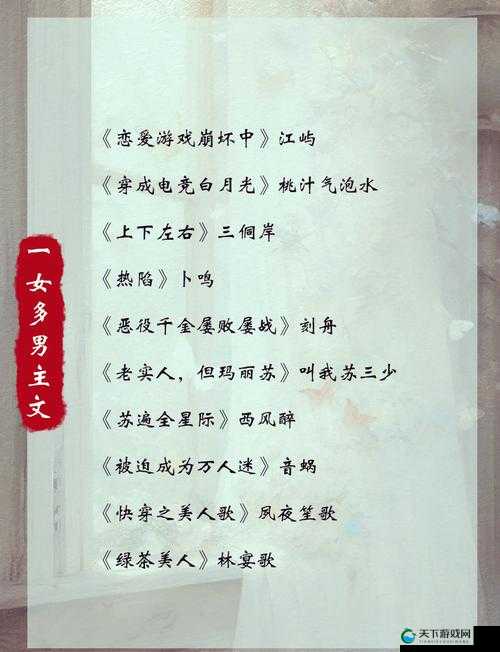 一女多男主文
《恋爱游戏崩坏中》江屿
《穿成电竞白月光》桃汁气泡水
《上下左右》三侗岸
《热陷》卜鸣
《恶役千金屡败屡战》刻舟
《老实人，但玛丽苏》叫我苏三少
《苏遍全星际》西风醉
《被迫成为万人迷》音蜗
《快穿之美人歌》凤夜笙歌
《绿茶美人》林宴歌
天下游戏网